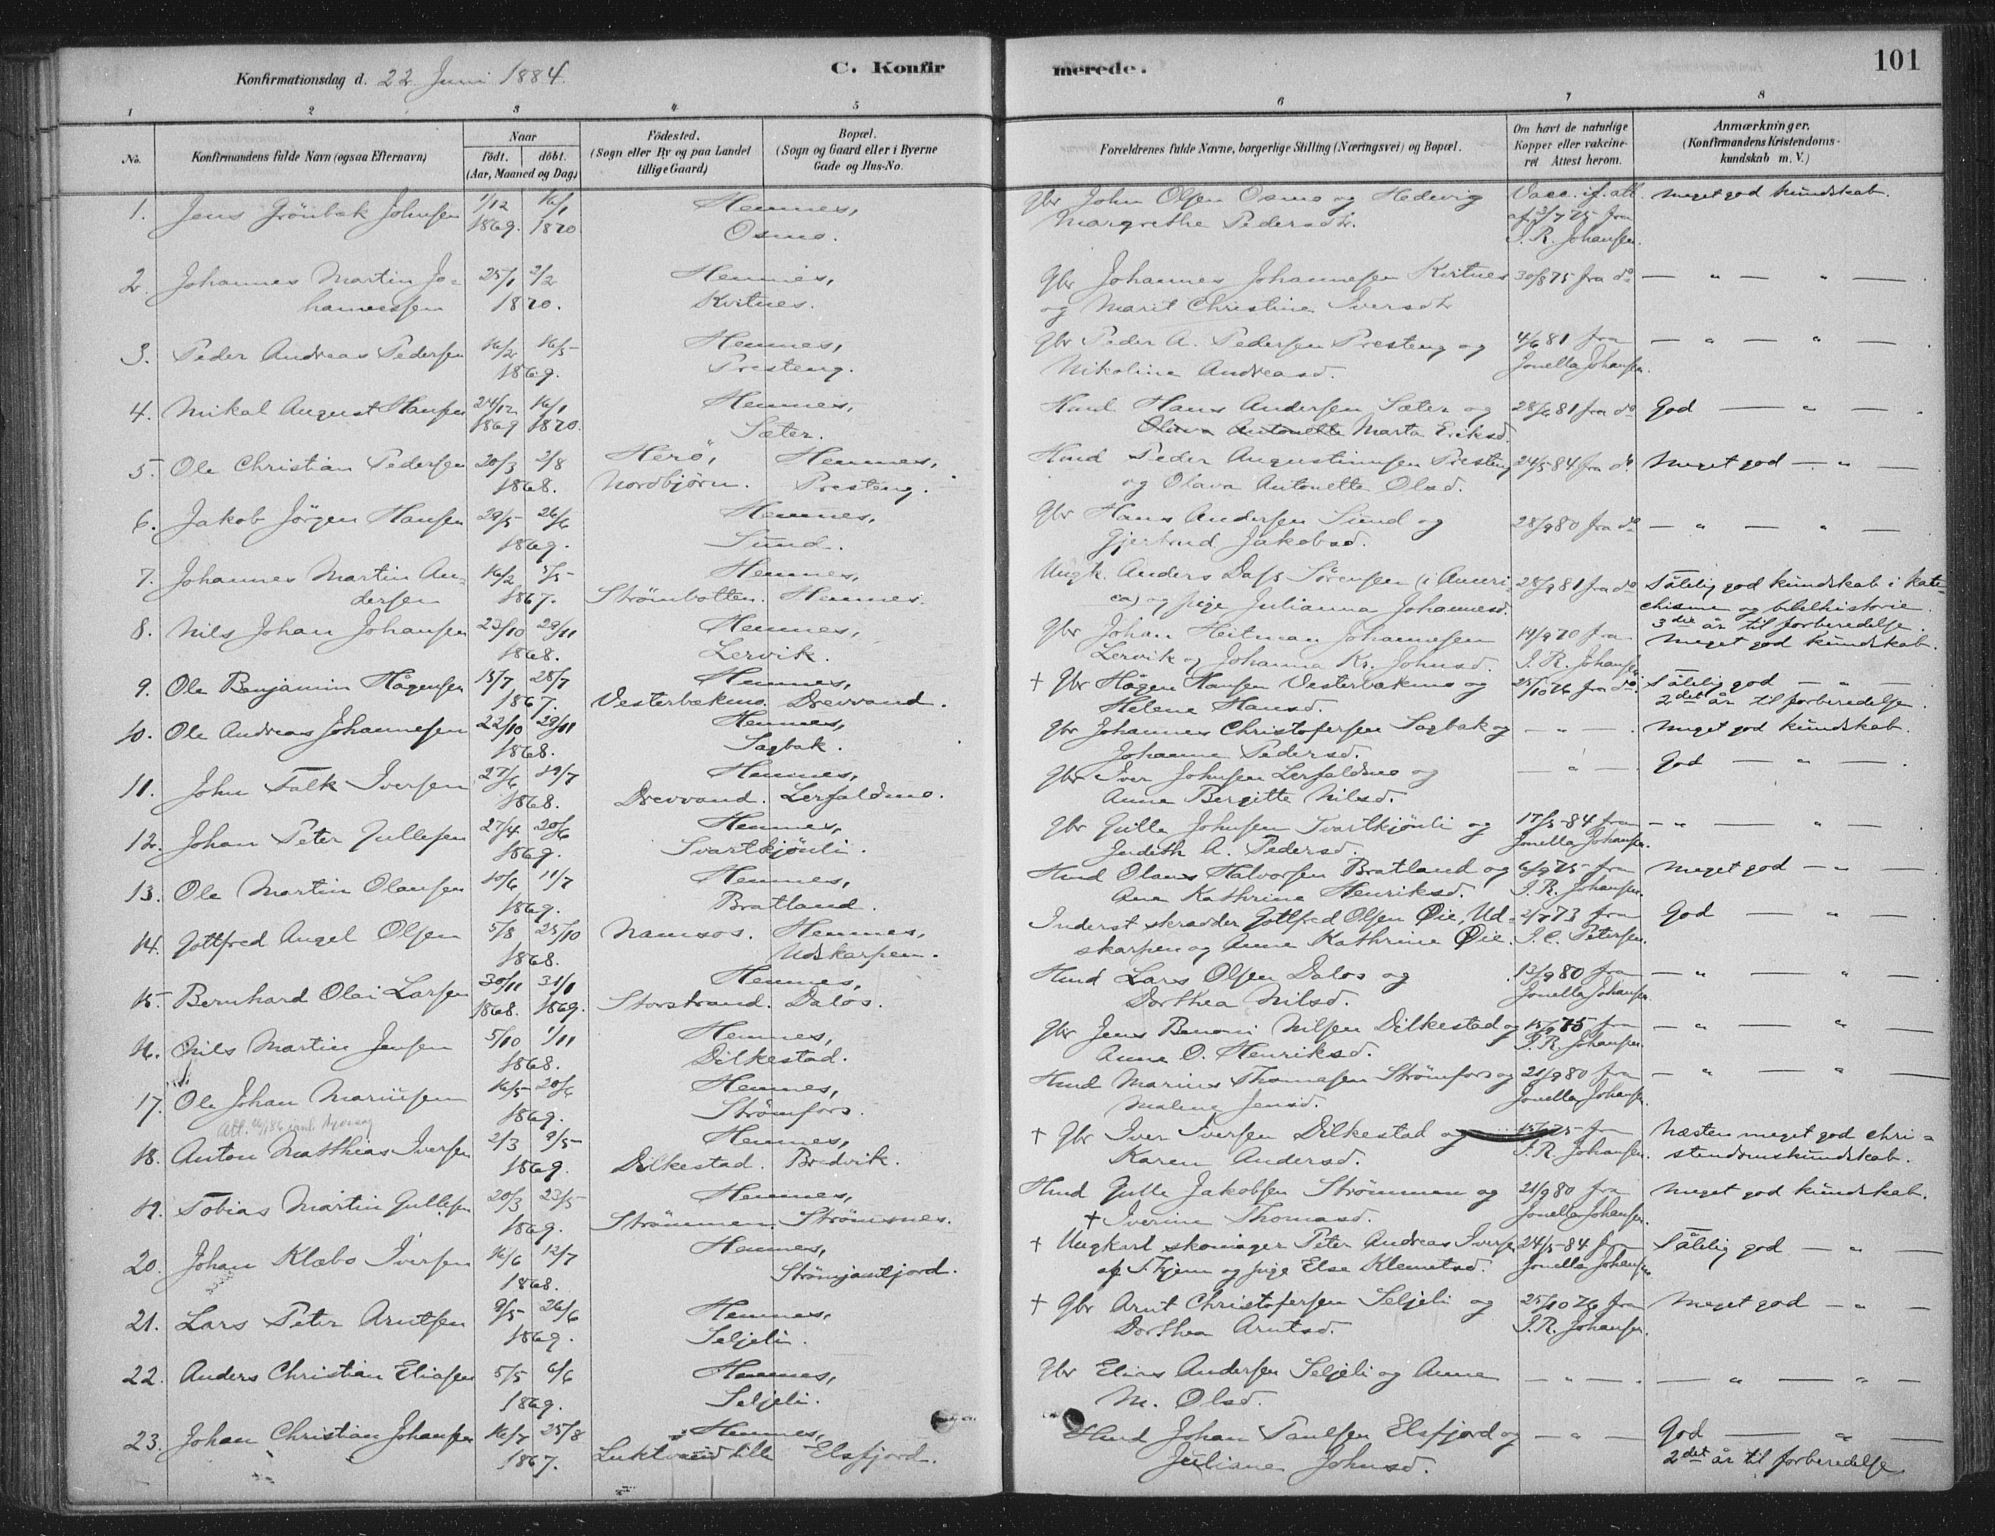 Konfirmationsdag d. 22 Juni 1884.
C. Konfir
merede.
101
1 2 3 4 5 6 7 8
No.
Konfirmandens fulde Navn (ogsaa Efternavn)
Naar
födt. döbt.
(Aar, Maaned og Dag)
Födested.
(Sogn eller By og paa Landet
tillige Gaard)
Bopæl.
(Sogn og Gaard eller i Byerne
Gade og Hus-No.
Forældrenes fulde Navne, borgerlige Stilling (Næringsvei) og Bopæl.
Om havt de naturlige
Kopper eller vakcine-
ret Attest herom.
Anmærkninger.
(Konfirmandens Kristendoms-
kundskab m. V.)
1. Jens Grönbek Johnsen 1/12 16/1 Hemnes, Gbr John Olsen Osmo og Hedevig Vacc. if. att. Meget god kundskab.
1869. 1870 Osmo. Margrethe Pedersdtr. af 3/7 75 fra
I. R. Johansen.
2. Johannes Martin Jo- 25/1 2/2 Hemnes, Gbr Johannes Johannesen Kvitnes 30/8 75 fra do — " — " — .
hannessen 1870. Kvitnes. og Marit Christine Iversdtr
3. Peder Andreas Pedersen 16/2 16/5 Hemnes, Gbr Peder A. Pedersen Presteng og 4/6 81 fra — " — " — .
1869. Presteng. Nikoline Andreasd. Jonella Johansen.
4. Mikal August Hansen 24/12 16/1 Hemnes, Hmd Hans Andersen Sæter og 28/6 81 fra do God — " — .
1869 1870. Sæter. Olava Antonette Marta Eriksd.
5. Ole Christian Pedersen 20/3 2/8 Herö, Hemnes, Hmd Peder Augustinusen Presteng 24/5 84 fra do. Meget god — " —
1868. Nordbjörn. Presteng. og Olava Antonette Olsd.
6. Jakob Jörgen Hansen 29/5 26/6 Hemnes, Gbr Hans Andersen Sund og 28/9 80 fra do — " — " —
1869. Sund. Gjertrud Jakobsd.
7. Johannes Martin An- 16/2 5/5 Hemnes, Ungk. Anders Dass Sörensen (i Ameri- 28/9 81 fra do Tålelig god kundskab i kate-
dersen 1867. Strömbotten. Hemnes. ca) og pige Julianna Johannesd. chisme og bibelhistorie.
3die år til forberedelse.
8. Nils Johan Johansen 23/10 29/11 Hemnes, Gbr Johan Heitman Johannesen 19/9 70 fra Meget god kundskab.
1868. Lervik. Lervik og Johanna Kr. Johnsd. I. R. Johansen
9. Ole Benjamin Hågensen 15/7 28/7 Hemnes, † Gbr Hågen Hansen Vesterbekmo og 25/10 76 fra do. Tålelig god — " —
1867. Vesterbekmo. Drevvand. Helene Hansd. 2det år til forberedelse.
10. Ole Andreas Johannesen 22/10 29/11 Hemnes, Gbr Johannes Christofersen Sagbak og — " — . Meget god kundskab.
1868. Sagbak. Johanna Pedersd.
11. John Falk Iversen 27/6 19/7 Hemnes, Gbr Iver Johnsen Lerfaldmo og — " — God — " — .
1868. Drevvand. Lerfaldmo. Anne Bergitte Nilsd.
12. Johan Peter Gullesen 27/4 20/6 Hemnes, Gbr Gulle Johnsen Svartkjönli og 17/5 84 fra — " — " — .
1869. Svartkjönli. Judith A. Pedersd. Jonella Johansen.
13. Ole Martin Olausen 10/6 11/7 Hemnes, Hmd Olaus Halvorsen Bratland og 6/9 75 fra Meget god — " — .
1869. Bratland. Ane Kathrine Henriksd. I. R. Johansen.
14. Gottfred Angel Olsen 5/8 25/10 Namsos. Hemnes, Inderst skrædder Gottfred Olsen Øie, Ud- 2/7 73 fra God — " —
1868. Udskarpen. skarpen og Anne Kathrine Øie. I. C. Petersen.
15. Bernhard Olai Larsen 30/11 31/1 Hemnes, Hmd Lars Olsen Dalos og 13/9 80 fra — " — " —
1868. 1869. Storstrand. Dalos. Dorthea Nilsd. Jonella Johansen.
16. Nils Martin Jensen 5/10 1/11 Hemnes, Gbr Jens Benoni Nilsen Dilkestad og 15/9 75 fra — " — " —
1868. Dilkestad. Anne O. Henriksd. I. R. Johansen.
17. Ole Johan Mariusen 16/5 20/6 Hemnes, Hmd Marius Thomesen Strömfors og 21/9 80 fra — " — " —
1869. Strömfors. Maline Jensd. Jonella Johansen
18. Anton Matthias Iversen 2/3 9/5 Hemnes, † Gbr Iver Iversen Dilkestad og 15/9 75 fra Næsten meget god chri-
1869. Dilkestad. Bredvik. Karen Andersd. I. R. Johansen. stendomskundskab.
19. Tobias Martin Gullesen 20/3 23/5 Hemnes, Hmd Gulle Jakobsen Strömmen og 21/9 80 fra Meget god kundskab.
1869. Strömmen. Strömsnes. † Iverine Thomasd. Jonella Johansen.
20. Johan Klæbo Iversen 16/6 12/7 Hemnes, † Ungkarl skomager Peter Andreas Iversen 24/5 84 fra Tålelig god — " —
1868. og pige Else Klemetsd. Jonella Johansen
21. Lars Peter Arntsen 9/5 26/6 Hemnes, † Gbr Arnt Christofersen Seljeli og 25/10 76 fra Meget god — " —
1869. Seljeli. Dorthea Arntsd. I. R. Johansen.
22. Anders Christian Eliasen 5/5 6/6 Hemnes, Gbr Elias Andersen Seljeli og Anne — " — . — " — " —
1869. Seljeli. M. Olsd.
23. Johan Christian Johansen 16/7 25/8 Hemnes, Hmd Johan Paulsen Elsfjord og — " — God — " —
1867. Luktvand lille Elsfjord. Juliane Johnsd. 2det år til forberedelse